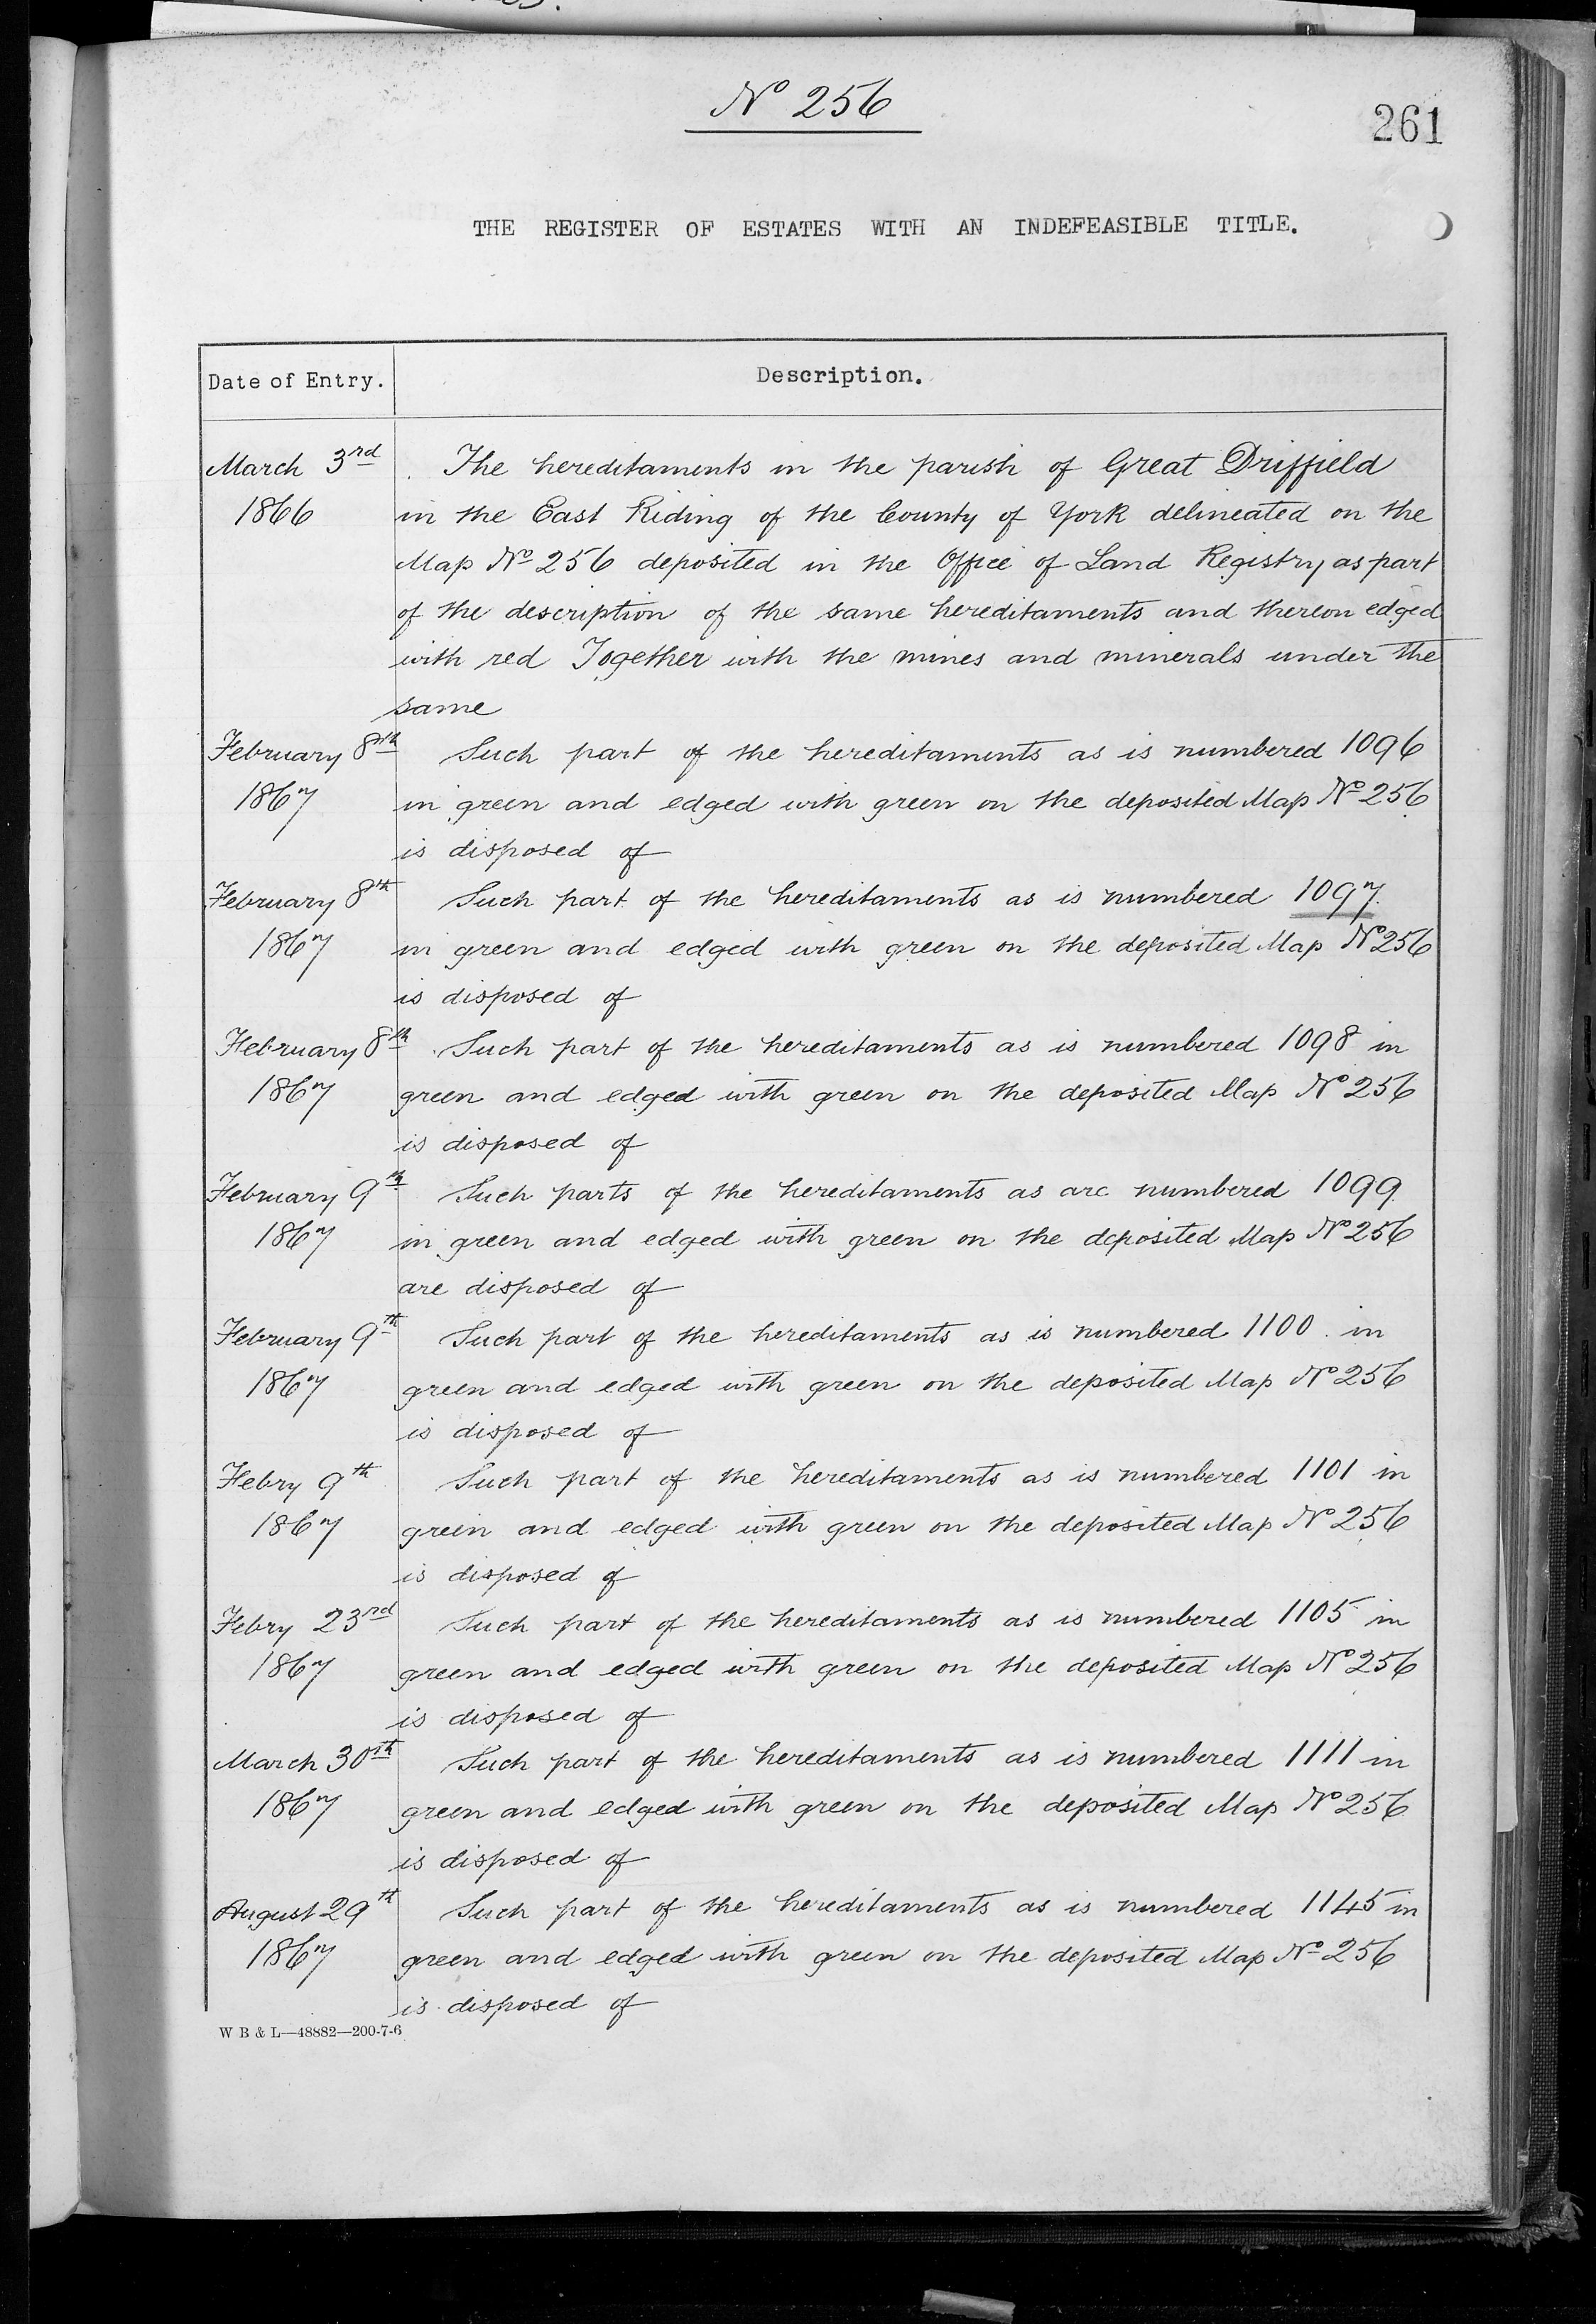 No 256
261
THE REGISTER OF ESTATES WITH AN INDEFEASIBLE TITLE.
Date of Entry. Description.
March 3rd The hereditaments in the parish of Great Driffield
1866 in the East Riding of the County of York delineated on the
Map No 256 deposited in the Office of Land Registry as part
of the description of the same hereditaments and thereon edged
with red Together with the mines and minerals under the
same
February 8th Such part of the hereditaments as is numbered 1096
1867 in green and edged with green on the deposited Map No 256
is disposed of
February 8th Such part of the hereditaments as is numbered 1097.
1867 in green and edged with green on the deposited Map No 256
is disposed of
February 8th Such part of the hereditaments as is numbered 1098 in
1867 green and edged with green on the deposited Map No 256
is disposed of
February 9th Such parts of the hereditaments as are numbered 1099
1867 in green and edged with green on the deposited Map No 256
are disposed of
February 9th Such part of the hereditaments as is numbered 1100 in
1867 green and edged with green on the deposited Map No 256
is disposed of
Febry 9th Such part of the hereditaments as is numbered 1101 in
1867 green and edged with green on the deposited Map No 256
is disposed of
Febry 23rd Such part of the hereditaments as is numbered 1105 in
1867 green and edged with green on the deposited Map No 256
is disposed of
March 30th Such part of the hereditaments as is numbered 1111 in
1867 green and edged with green on the deposited Map No 256
is disposed of
August 29th Such part of the hereditaments as is numbered 1145 in
1867 green and edged with green on the deposited Map No 256
is disposed of
W B & L—48882—200-7-6